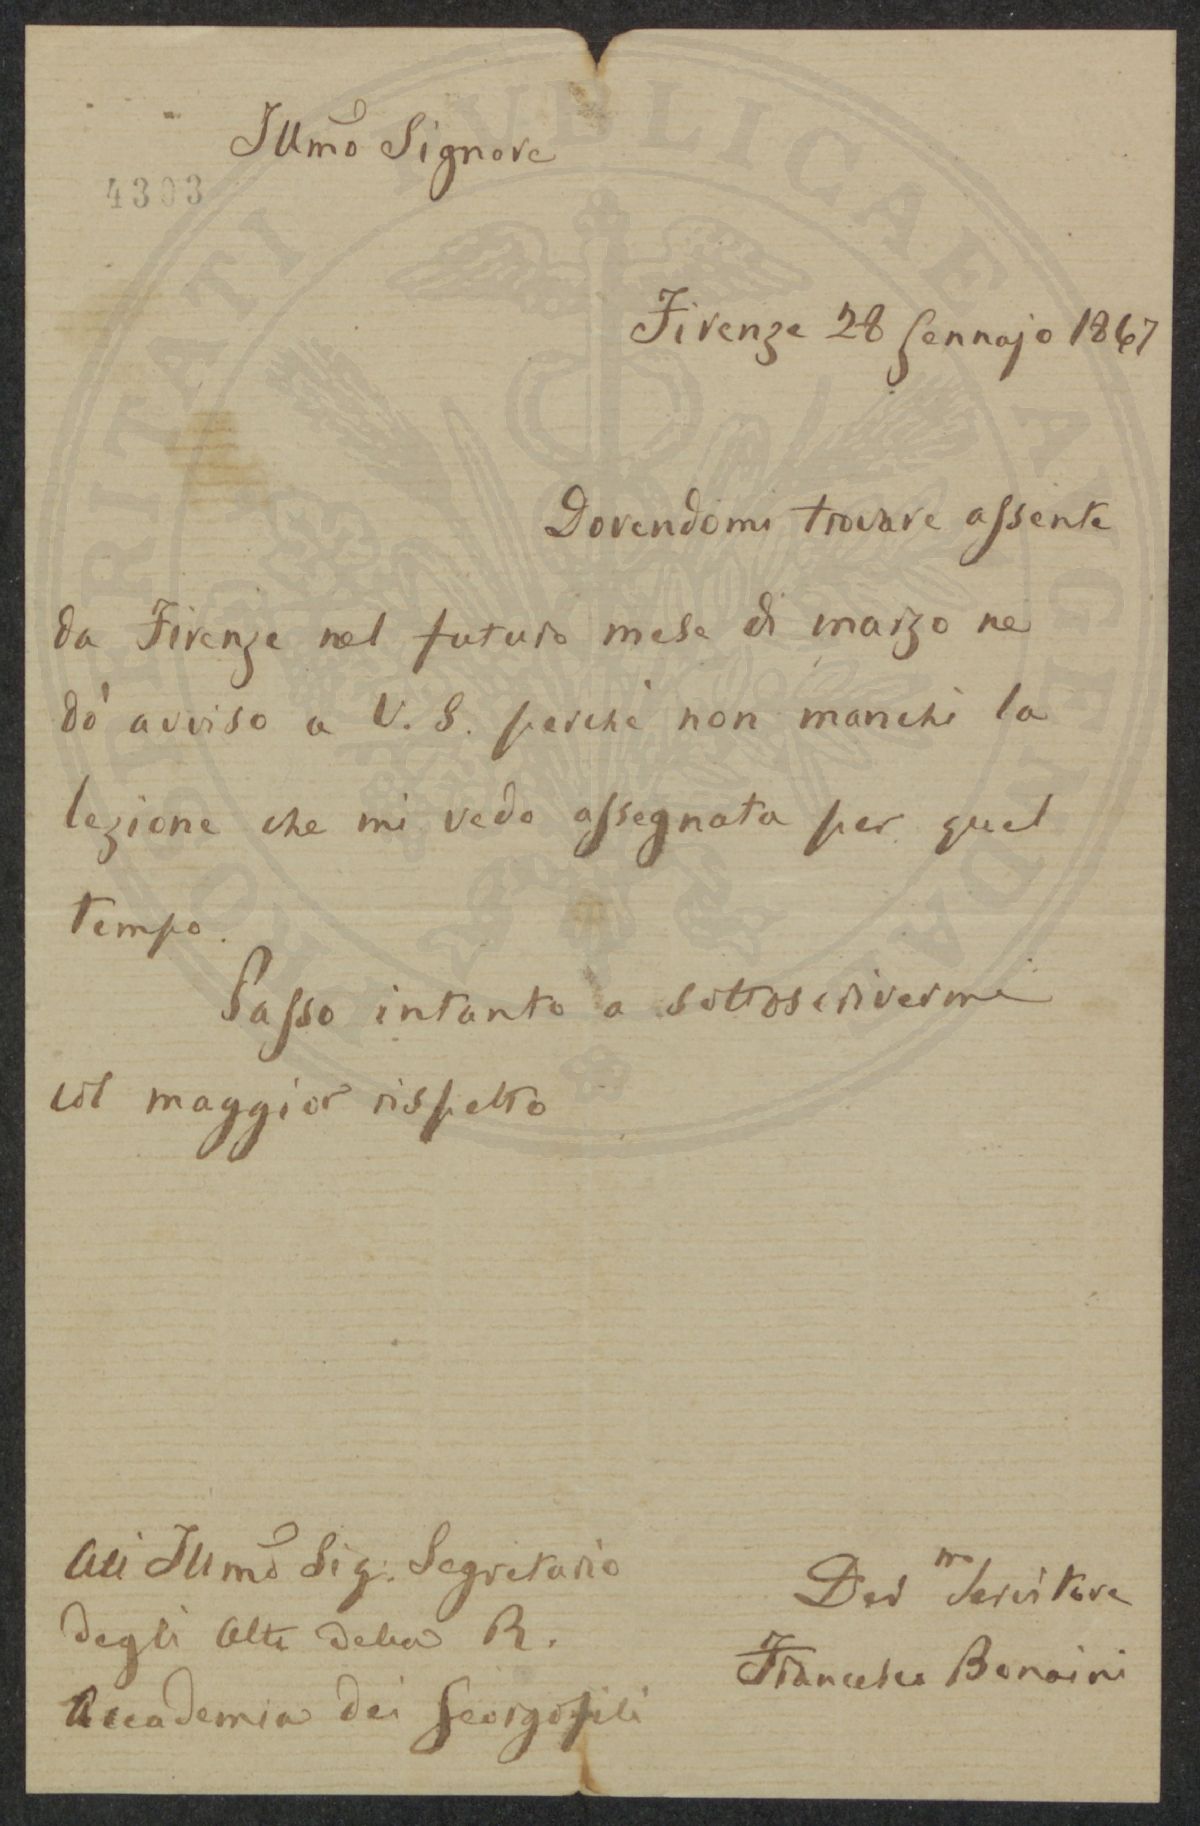 Illmo Signore
4303
Firenze 28 Gennajo 1867
Dovendomi trovare assente
da Firenze nel futuro mese di marzo ne
dò avviso a V. S. perchè non manchi la
lezione che mi vedo assegnata per quel
tempo.
Passo intanto a sottoscrivermi
col maggior rispetto
All Illmo Sig. Segretario
degli Atti della R.
Accademia dei Georgofili
Dev mo Servitore
Francesco Bonaini
PROSPERITATI PUBLICAE AUGENDAE